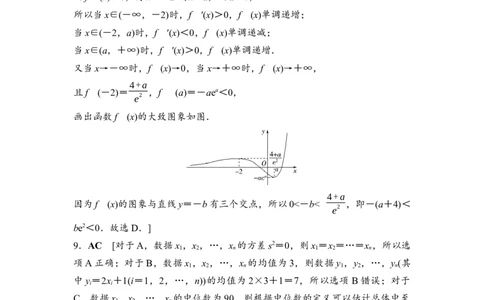 所以当 x∈(-∞,-2)时,f ′(x)>0,f (x)单调递增;
当 x∈(-2,a)时,f ′(x)<0,f (x)单调递减;
当 x∈(a,+∞)时,f ′(x)>0,f (x)单调递增.
又当 x→-∞时,f (x)→0,当 x→+∞时,f (x)→+∞,
且 f (-2)=4+a/e²,f (a)=-aeᵃ<0,
画出函数 f (x)的大致图象如图.
y
4+a
e²
-2 O a x
-aeᵃ
因为 f (x)的图象与直线 y=-b 有三个交点,所以 0<-b<4+a/e²,即-(a+4)<
be2<0.故选 D.]
9.AC [对于 A,数据 x₁,x₂,…,xₙ 的方差 s2=0,则 x₁=x₂=…=xₙ,所以选
项 A 正确;对于 B,数据 x₁,x₂,…,xₙ 的均值为 3,则数据 y₁,y₂,…,yₙ(其
中 yᵢ=2xᵢ+1(i=1,2,…,n))的均值为 2×3+1=7,所以选项 B 错误;对于